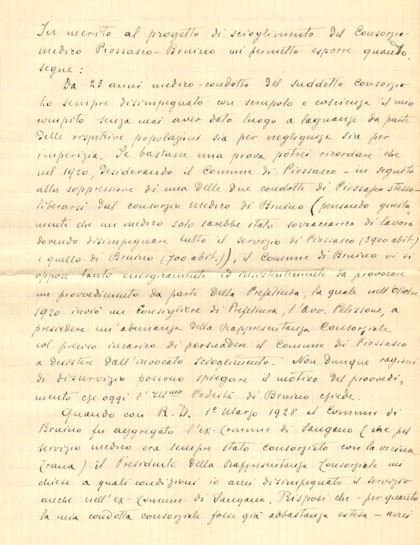 In merito al progetto di scioglimento del Consorzio
medico Piossasco-Bruino mi permetto esporre quanto
segue:
Da 23 anni medico-condotto del suddetto consorzio
ho sempre disimpegnato con scrupolo e coscienza il mio
compito senza mai aver dato luogo a lagnanze da parte
delle rispettive popolazioni sia per negligenza sia per
imperizia. Se bastane una prova potrei ricordare che
nel 1920, desiderando il Comune di Piossasco - in seguito
alla soppressione di una delle due condotte di Piossasco stesso
liberarsi dal consorzio medico di Bruino (pensando giusta
mente che un medico solo sarebbe stato sovraccarico di lavoro
dovendo disimpegnare tutto il servizio di Piossasco (3900 abit.)
e quello di Bruino (700 abit.)), il Comune di Bruino vi si
oppose tanto energicamente ed insistentemente da provocare
un provvedimento da parte della Prefettura, la quale nell'Ottobre
1920 inviò un Consigliere di Prefettura, l'Avv. Pelissone, a
presiedere un'adunanza della Rappresentanza Consorziale
col preciso incarico di persuadere il Comune di Piossasco
a desistere dall'invocato scioglimento. Non dunque ragioni
di disservizio possono spiegare il motivo del provvedi-
mento che oggi l'Ill.mo Podestà di Bruino chiede.
Quando con R. D. 1° Marzo 1928 al Comune di
Bruino fu aggregato l'ex-Comune di Sangano (che pel
servizio medico era sempre stato consorziato con la vicina
Trana) il Presidente della Rappresentanza Consorziale mi
chiese a quali condizioni io avrei disimpegnato il servizio
anche nell'ex-Comune di Sangano. Risposi che - per quanto
la mia condotta consorziale fosse già abbastanza estesa - avrei